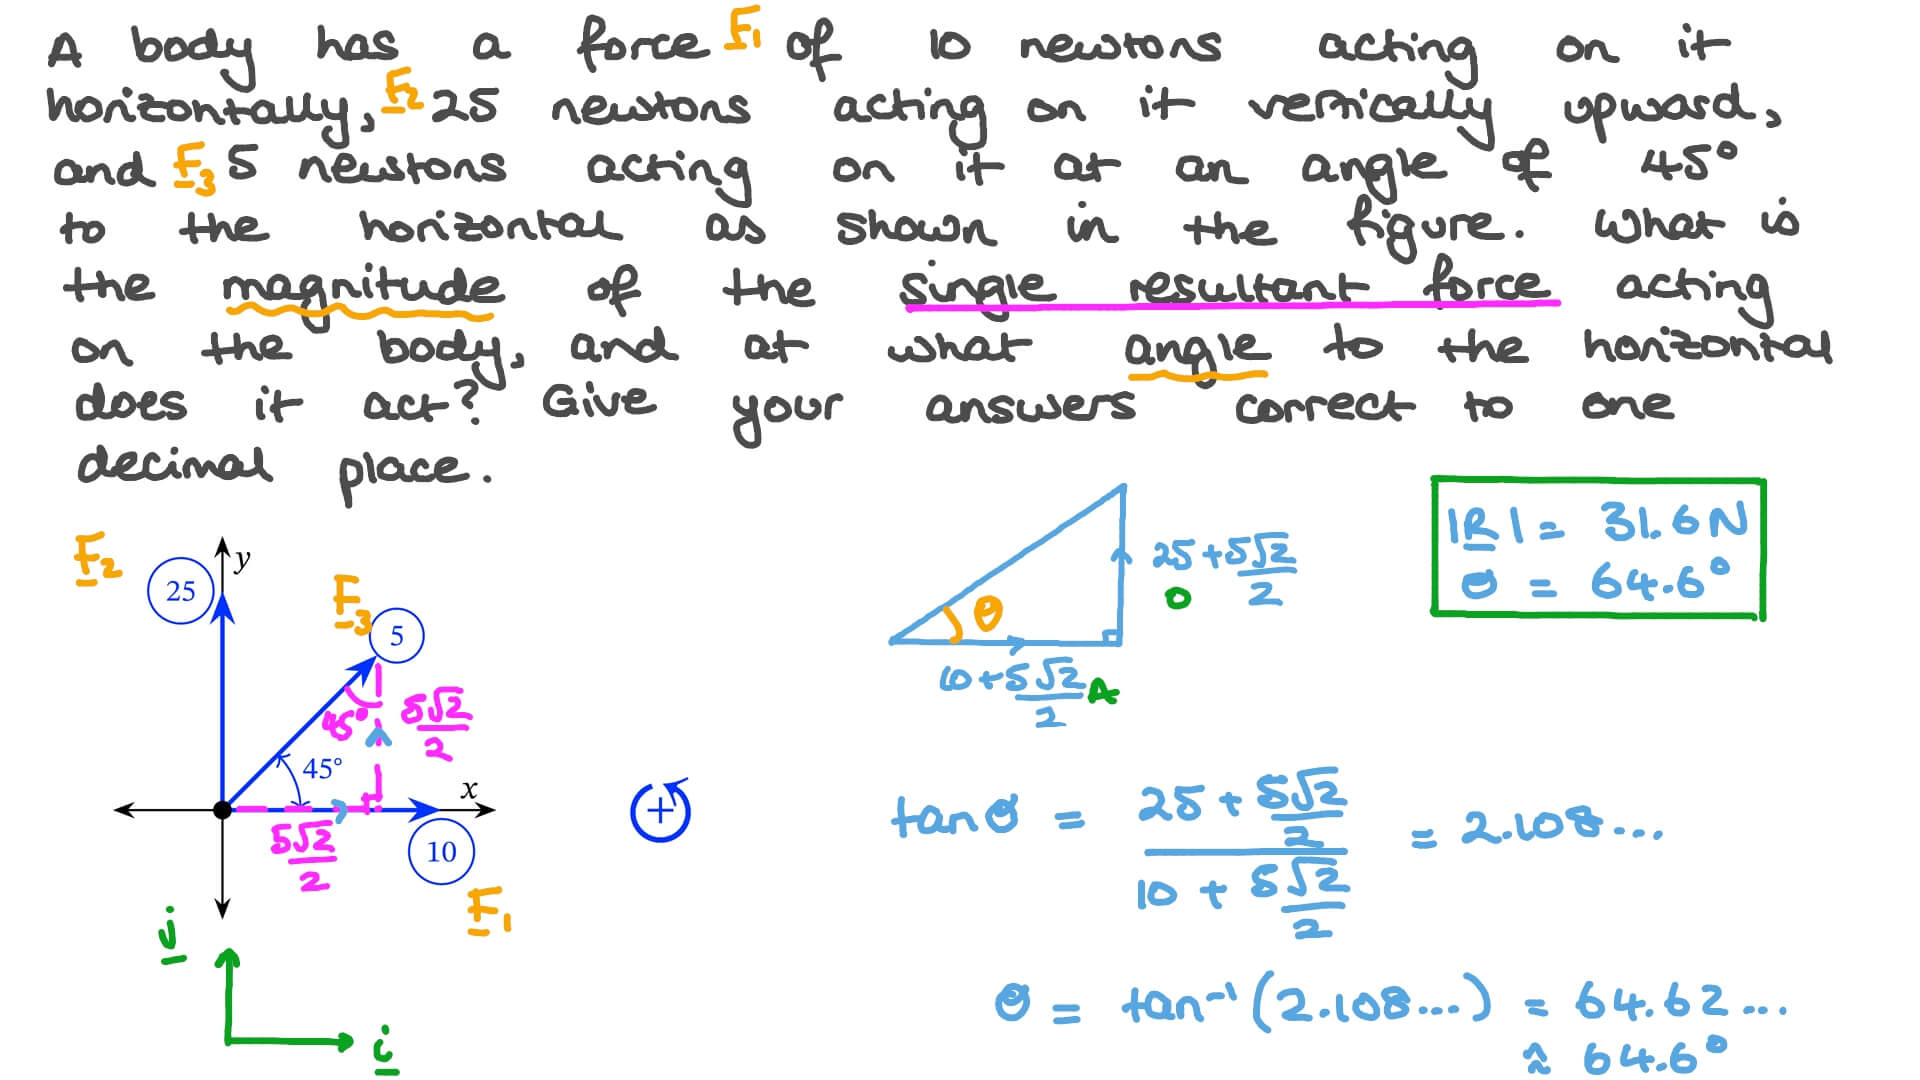 A body has a force F₁ of 10 newtons acting on it
horizontally, F₂ 25 newtons acting on it vertically upward,
and F₃ 5 newtons acting on it at an angle of 45°
to the horizontal as shown in the figure. What is
the magnitude of the single resultant force acting
on the body, and at what angle to the horizontal
does it act? Give your answers correct to one
decimal place.
|R| = 31.6N
θ = 64.6°
F₂
25
y
F₃
5
45°
5√2/2
45°
x
5√2/2
10
F₁
j
i
+
θ
25 + 5√2/2
O
10 + 5√2/2
A
tan θ = (25 + 5√2/2)/(10 + 5√2/2) = 2.108...
θ = tan⁻¹(2.108...) = 64.62...
≈ 64.6°